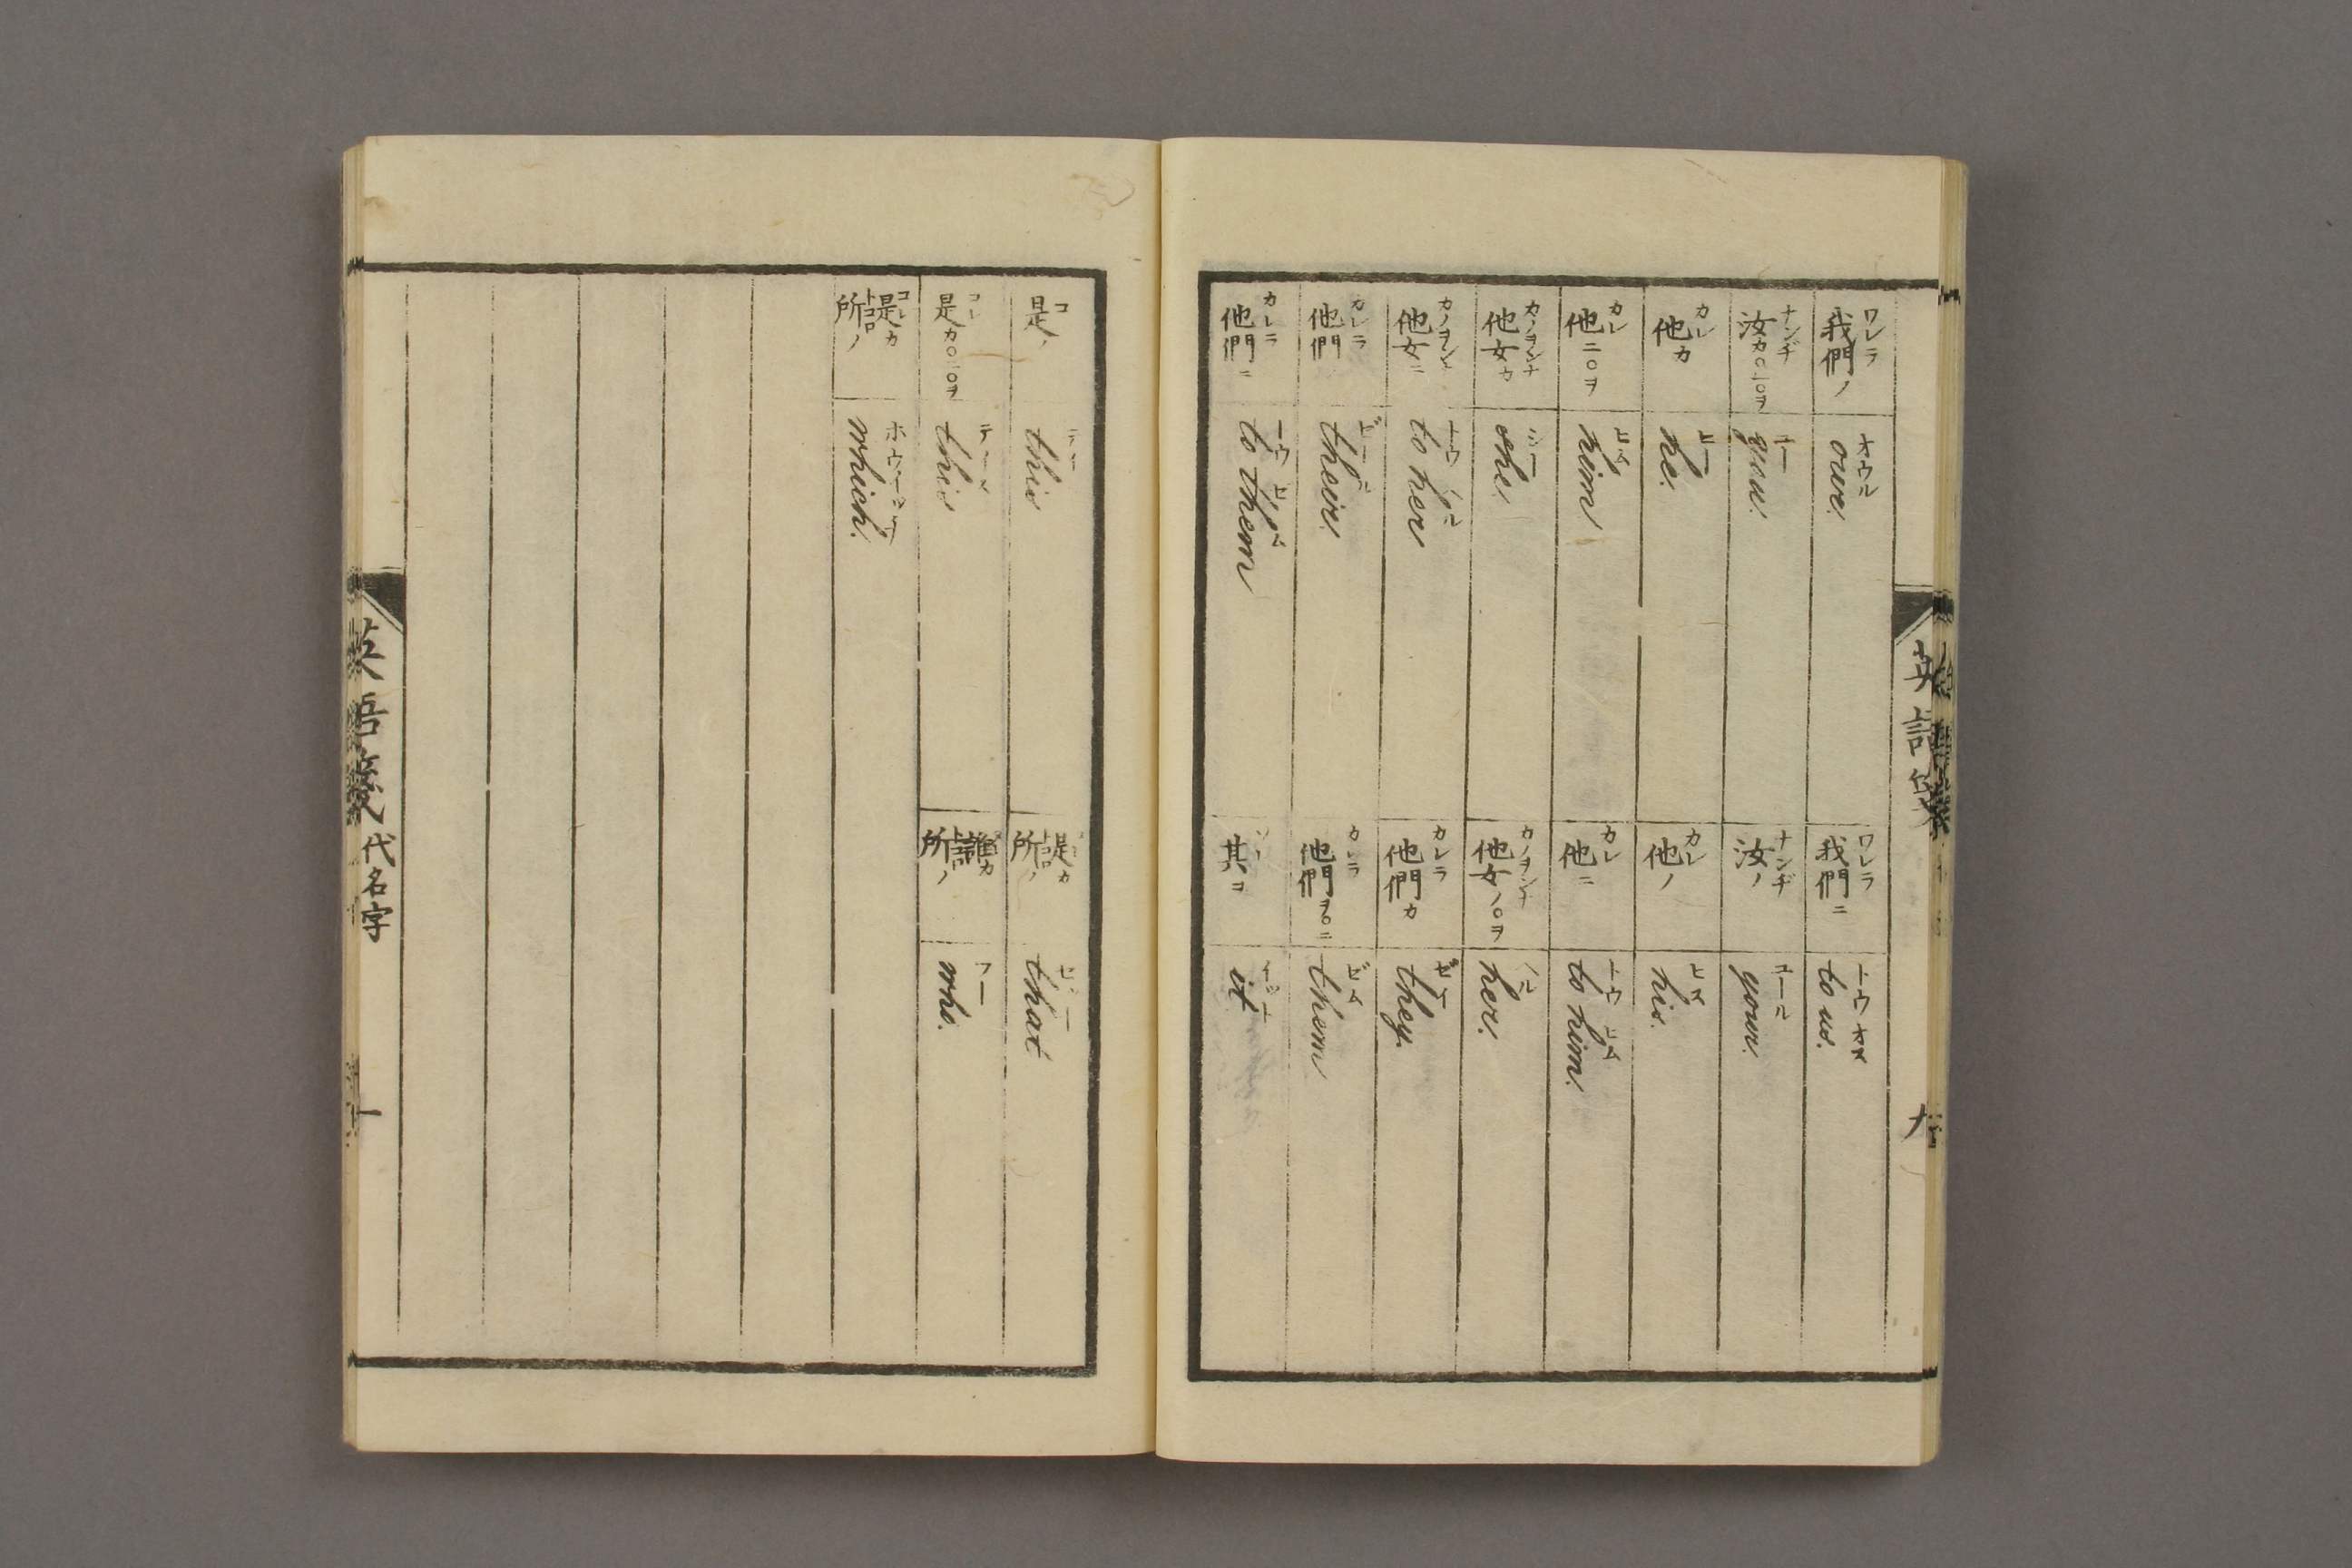 英語箋
我們ノ ワレラ
our. オウル
我們ニ ワレラ
to us. トウ オス
汝カ○ニ○ヲ ナンヂ
you. ユー
汝ノ ナンヂ
your. ユール
他カ カレ
he. ヒー
他ノ カレ
his. ヒス
他ニ○ヲ カレ
him ヒム
他ニ カレ
to him. トウ ヒム
他女カ カノヲンナ
she. シー
他女ノ○ヲ カノヲンナ
her. ハル
他女ニ カノヲンナ
to her トウ ハル
他們カ カレラ
they. ゼー
他們 カレラ
their.
他們ヲ○ニ カレラ
them ゼム
他們ニ カレラ
to them トウ
其ヲ
it
是ノ コ
this
是カ 所ノ トコロ
that
是カ○ニ○ヲ コレ
this
誰カ 所ノ
who. フー
是カ 所ノ コレ トコロ
which.
英語箋 代名字